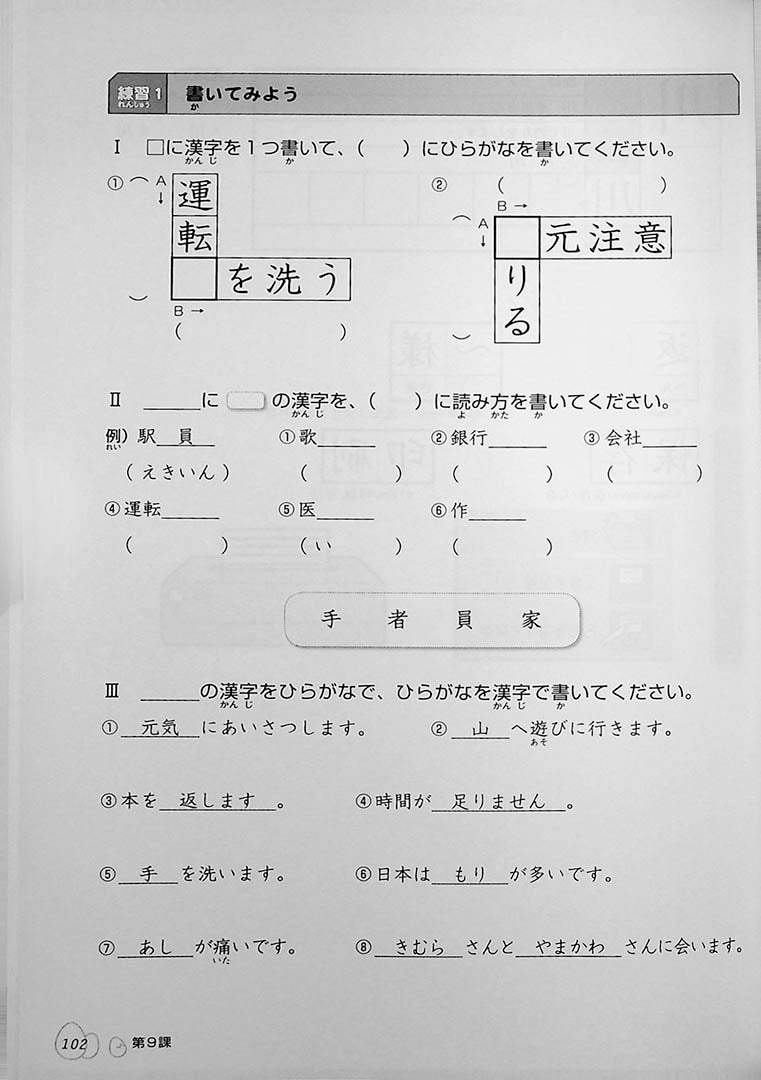 練習1 書いてみよう
れんしゅう か
Ⅰ □に漢字を1つ書いて、( )にひらがなを書いてください。
かんじ か か
① ( ) A↓ 運
転
□を洗う
B→
( )
② ( )
B→
( ) A↓ □元注意
り
る
Ⅱ ______に □ の漢字を、( )に読み方を書いてください。
かんじ よ かた か
例)駅 員 ①歌______ ②銀行______ ③会社______
れい
(えきいん) ( ) ( ) ( )
④運転______ ⑤医______ ⑥作______
( ) (い ) ( )
手 者 員 家
Ⅲ ______の漢字をひらがなで、ひらがなを漢字で書いてください。
かんじ かんじ か
① 元気 にあいさつします。 ② 山 へ遊びに行きます。
あそ
③本を 返します 。 ④時間が 足りません 。
⑤ 手 を洗います。 ⑥日本は もり が多いです。
⑦ あし が痛いです。 ⑧ きむら さんと やまかわ さんに会います。
いた
102 第9課